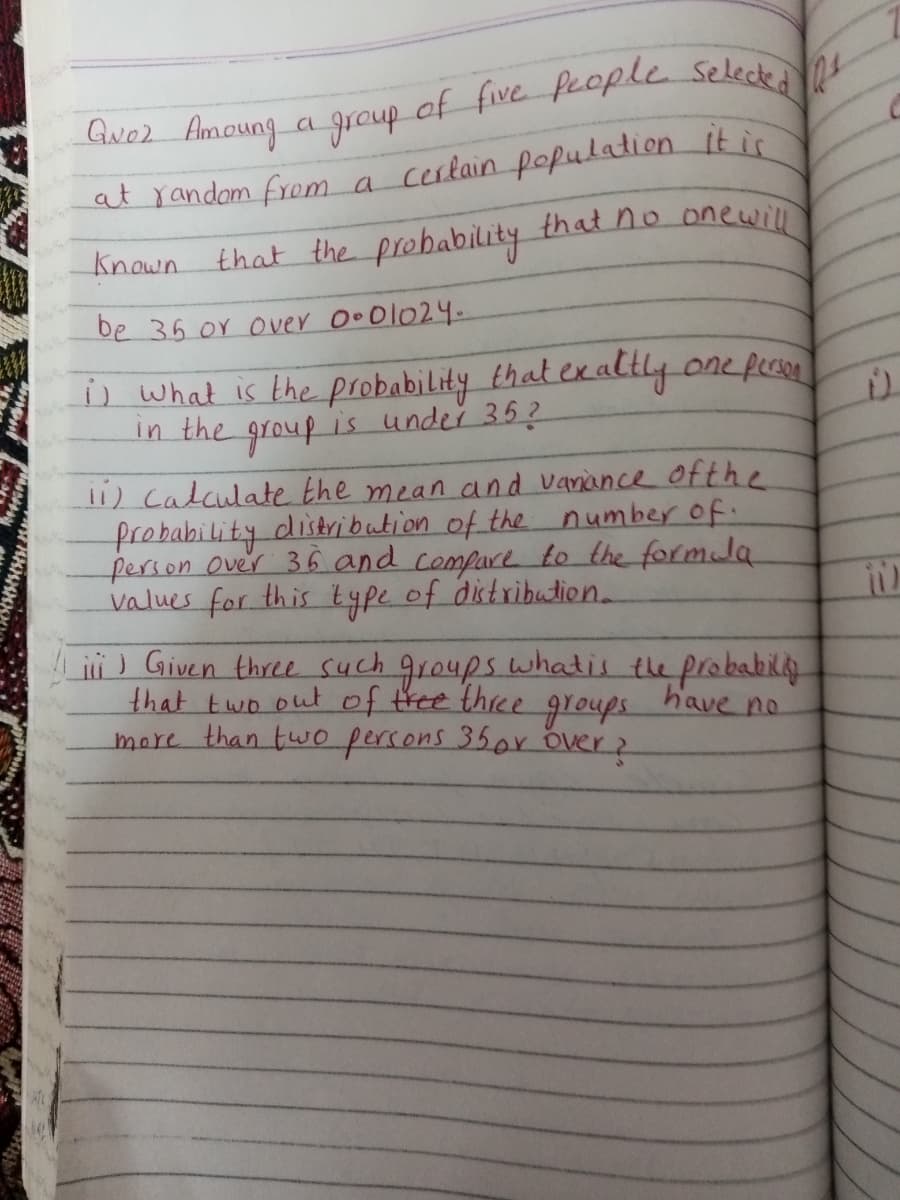 QNo2 Amoung a group of five People Selected
at random from a certain population it is
Known that the probability that no one will
be 35 or over 0.01024.
i) what is the probability that exaltly one person
in the group is under 35?
ii) calculate the mean and variance of the
probability distribution of the number of.
person over 35 and compare to the formula
values for this type of distribution.
iii) Given three such groups what is the probability
that two out of tree three groups have no
more than two persons 35 or over?
i)
ii)